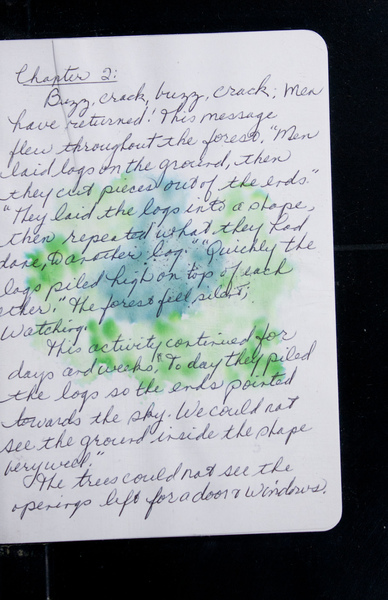 Chapter 2:
Buzz, crack, buzz, crack; Men
have returned! This message
flew throughout the forest. "Men
laid logs on the ground, then
they cut pieces out of the ends."
"They laid the logs into a shape,
then repeated what they had
done, to another log." "Quickly the
logs piled high on top of each
other." The forest fell silent;
Watching.
This activity continued for
days and weeks, "Today they piled
the logs so the ends pointed
towards the sky. We could not
see the ground inside the shape
very well."
The trees could not see the
openings left for a door & windows.